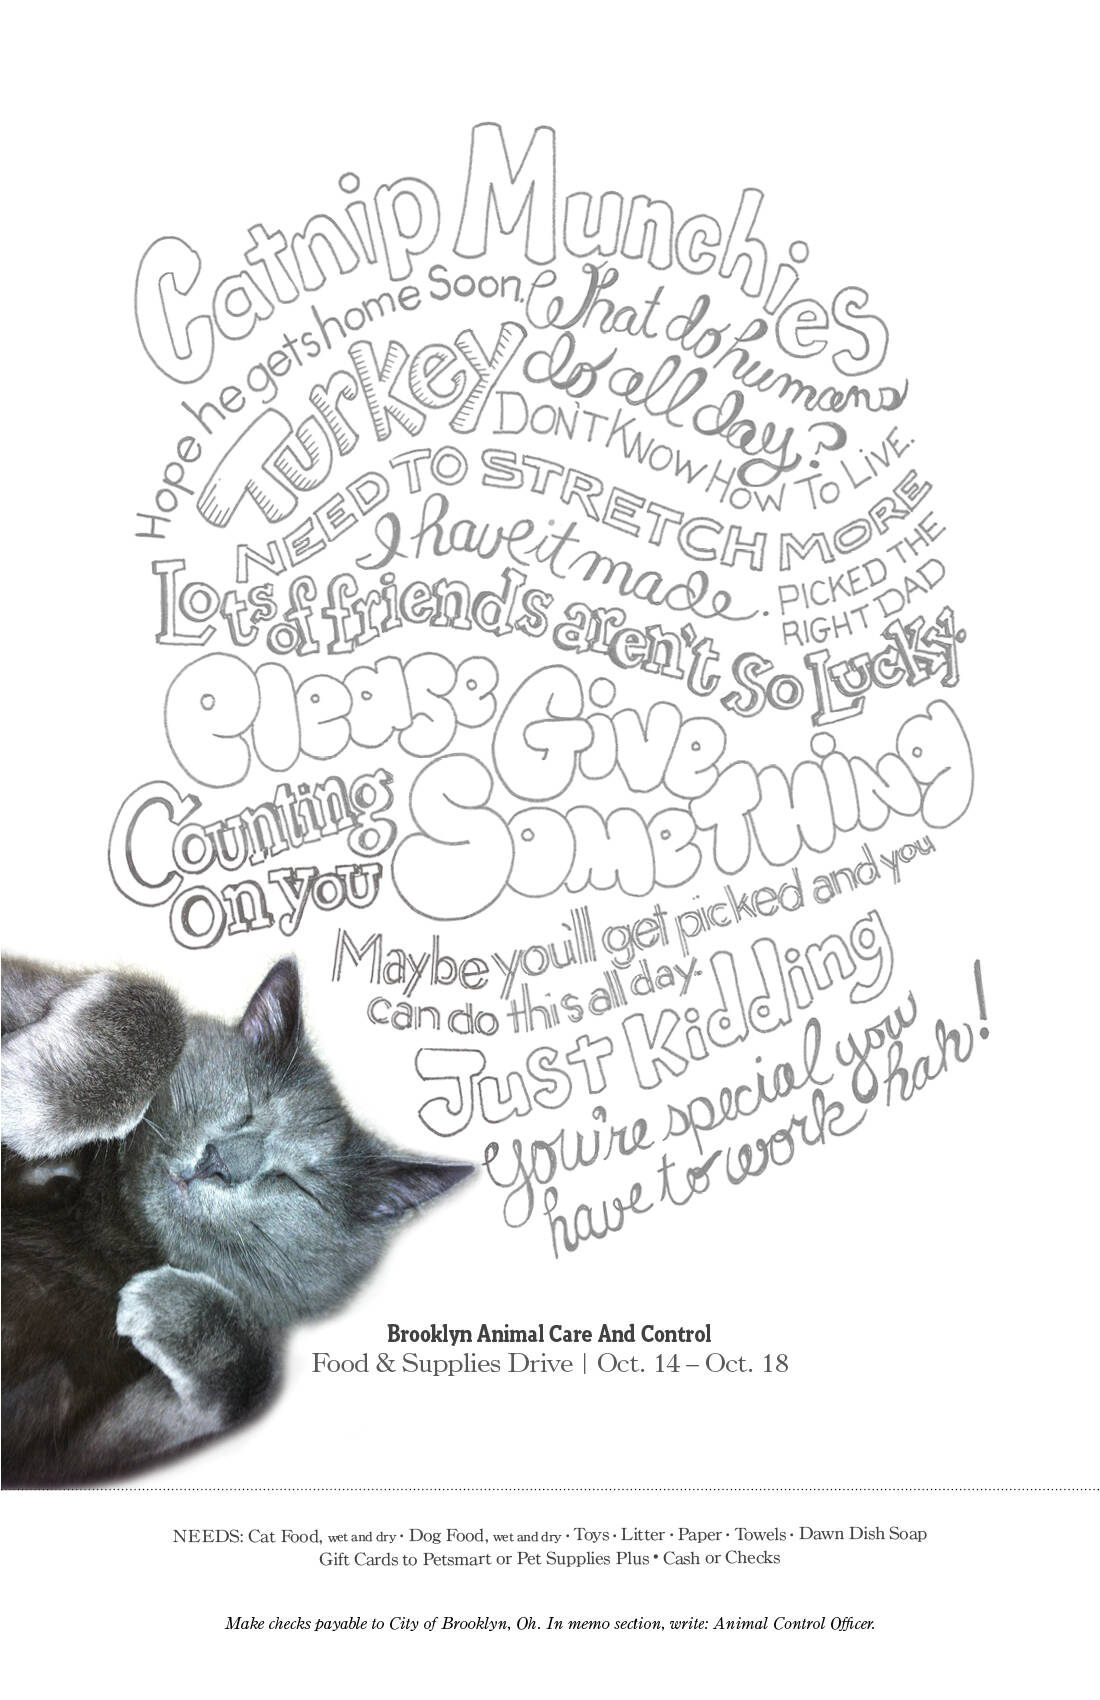 Catnip Munchies
Hope he gets home Soon.
What do humans
do all day?
Turkey
DON'T KNOW HOW TO LIVE.
NEED TO STRETCH MORE
I have it made.
PICKED THE
RIGHT DAD
Lots of friends aren't So Lucky.
Please Give
Something
Counting
on you
Maybe you'll get picked and you
can do this all day.
Just Kidding
you're special you
have to work hah!
Brooklyn Animal Care And Control
Food & Supplies Drive | Oct. 14 – Oct. 18
NEEDS: Cat Food, wet and dry · Dog Food, wet and dry · Toys · Litter · Paper · Towels · Dawn Dish Soap
Gift Cards to Petsmart or Pet Supplies Plus • Cash or Checks
Make checks payable to City of Brooklyn, Oh. In memo section, write: Animal Control Officer.